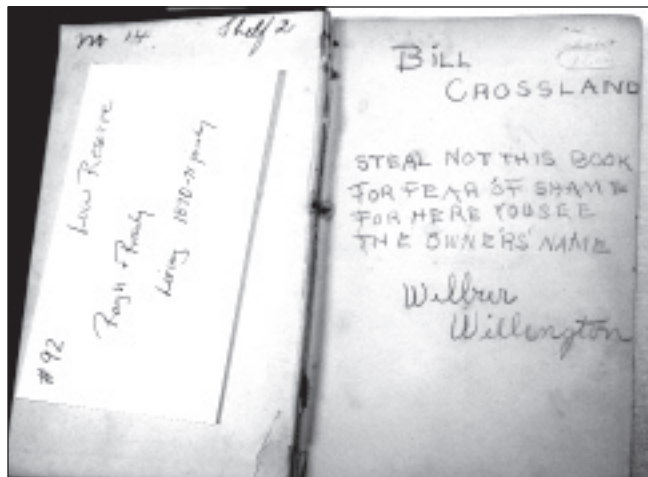 No 14. Shelf 2
#92
Low Reserve
Rough & Ready
BILL
CROSSLAND
STEAL NOT THIS BOOK
FOR FEAR OF SHAME
FOR HERE YOU SEE
THE OWNERS' NAME
Wilbur
Willington